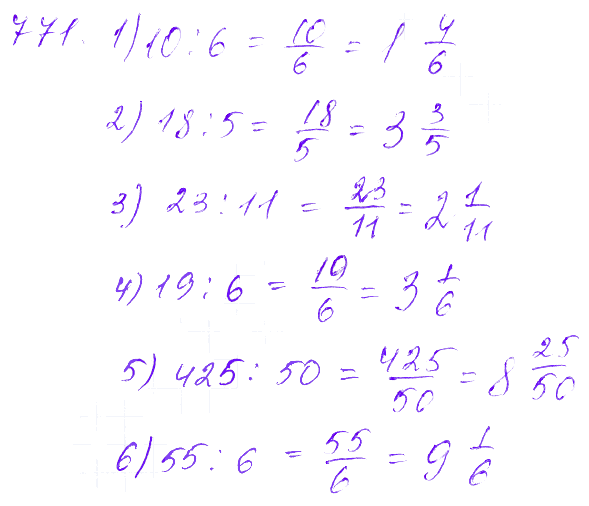 771. 1) 10 : 6 = 10/6 = 1 4/6
2) 18 : 5 = 18/5 = 3 3/5
3) 23 : 11 = 23/11 = 2 1/11
4) 19 : 6 = 19/6 = 3 1/6
5) 425 : 50 = 425/50 = 8 25/50
6) 55 : 6 = 55/6 = 9 1/6